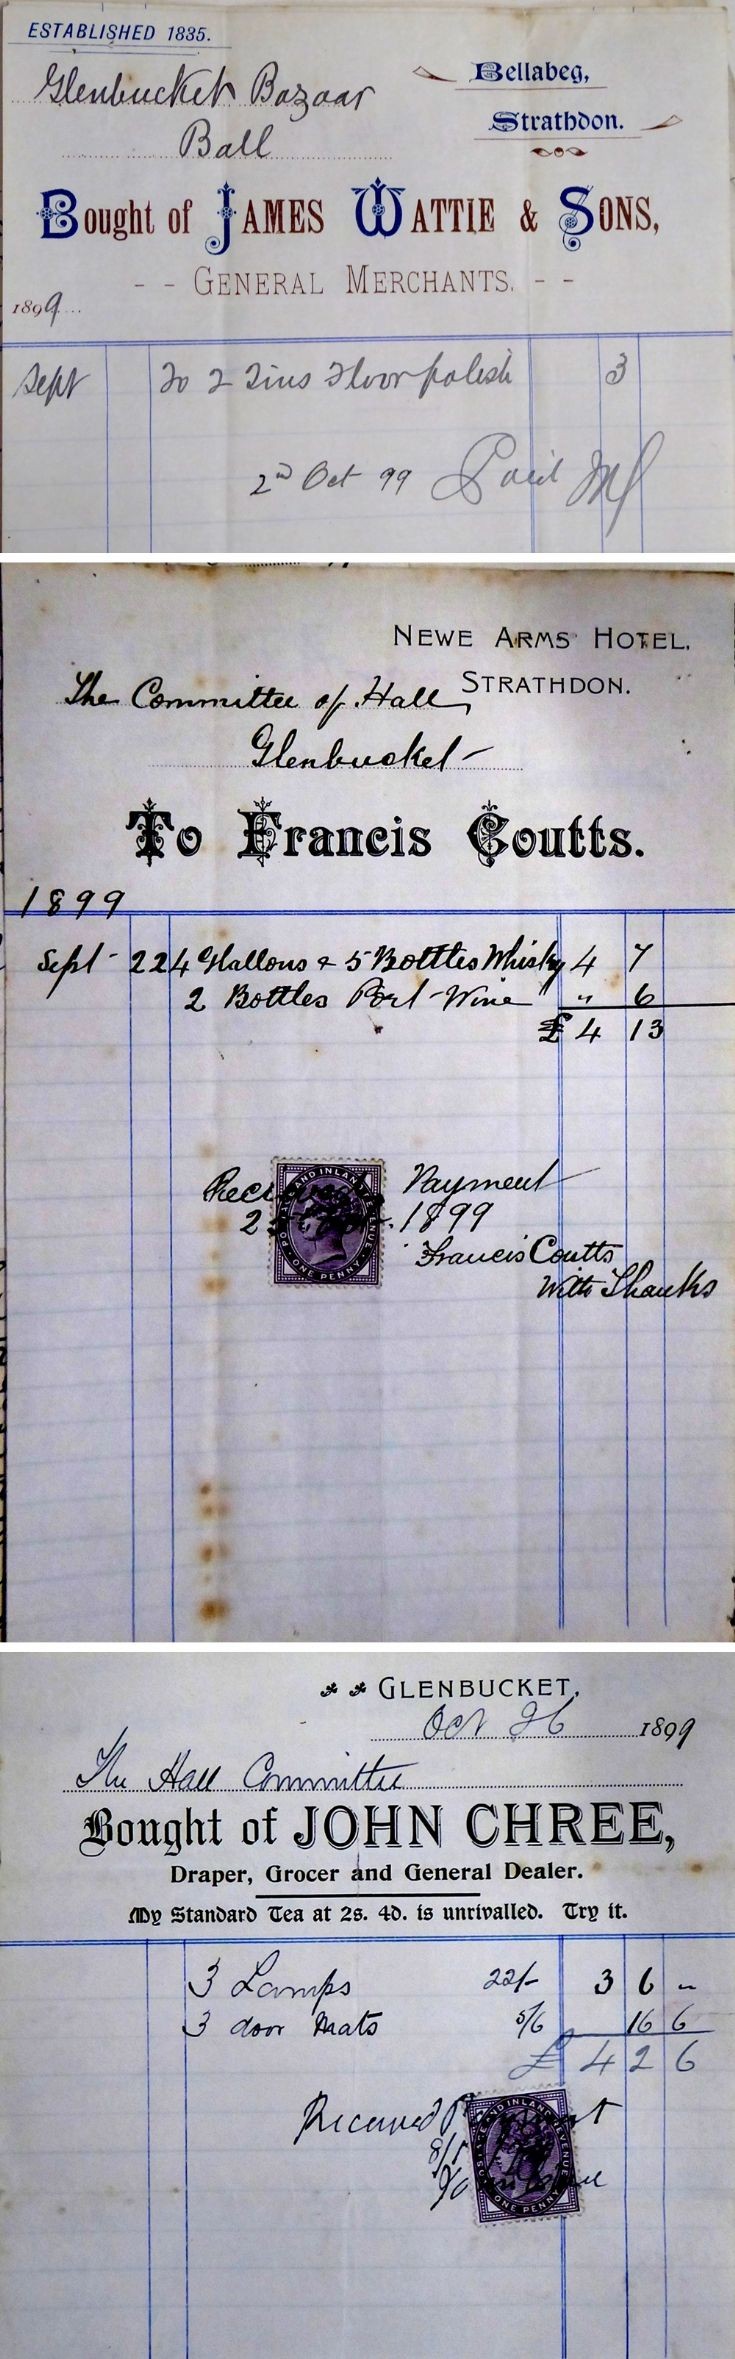 ESTABLISHED 1835.
Glenbucket Bazaar
Ball
Bellabeg,
Strathdon.
Bought of JAMES WATTIE & SONS,
- - GENERAL MERCHANTS. - -
1899
Sept To 2 Tins Floor polish 3
2nd Oct 99 Paid
NEWE ARMS HOTEL,
STRATHDON.
The Committee of Hall
Glenbucket
To Francis Coutts.
1899
Sept 22 4 Gallons & 5 Bottles Whisky 4 7
2 Bottles Port Wine " 6
£ 4 13
POSTAGE AND INLAND REVENUE
ONE PENNY
Payment
1899
Francis Coutts
With Thanks
GLENBUCKET,
Oct 26 1899
The Hall Committee
Bought of JOHN CHREE,
Draper, Grocer and General Dealer.
My Standard Tea at 2s. 4d. is unrivalled. Try it.
3 Lamps 22/- 3 6 "
3 door Mats 5/6 16 6
£ 4 2 6
Received Payment
POSTAGE AND INLAND REVENUE
ONE PENNY